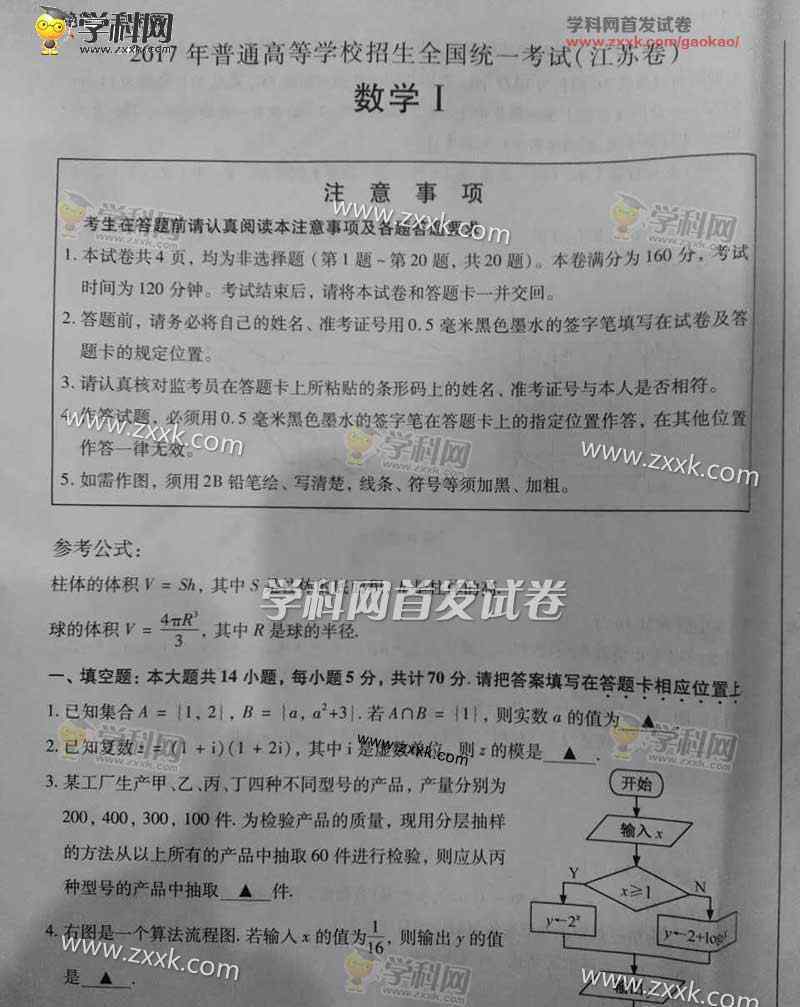 学科网
www.zxxk.com
学科网首发试卷
www.zxxk.com/gaokao/
2017 年普通高等学校招生全国统一考试(江苏卷)
数学 I
注 意 事 项
考生在答题前请认真阅读本注意事项及各题答题要求
1. 本试卷共 4 页，均为非选择题（第 1 题~第 20 题，共 20 题）。本卷满分为 160 分，考试
时间为 120 分钟。考试结束后，请将本试卷和答题卡一并交回。
2. 答题前，请务必将自己的姓名、准考证号用 0.5 毫米黑色墨水的签字笔填写在试卷及答
题卡的规定位置。
3. 请认真核对监考员在答题卡上所粘贴的条形码上的姓名、准考证号与本人是否相符。
4. 作答试题，必须用 0.5 毫米黑色墨水的签字笔在答题卡上的指定位置作答，在其他位置
作答一律无效。
5. 如需作图，须用 2B 铅笔绘、写清楚，线条、符号等须加黑、加粗。
参考公式:
柱体的体积 V = Sh，其中 S
学科网首发试卷
球的体积 V = 4πR³/3，其中 R 是球的半径.
一、填空题：本大题共 14 小题，每小题 5 分，共计 70 分. 请把答案填写在答题卡相应位置上
1. 已知集合 A = {1, 2}, B = {a, a²+3}. 若 A∩B = {1}，则实数 a 的值为 ▲
2. 已知复数 z = (1 + i)(1 + 2i)，其中 i 是虚数单位，则 z 的模是 ▲ .
3. 某工厂生产甲、乙、丙、丁四种不同型号的产品，产量分别为
200, 400, 300, 100 件. 为检验产品的质量，现用分层抽样
的方法从以上所有的产品中抽取 60 件进行检验，则应从丙
种型号的产品中抽取 ▲ 件.
4. 右图是一个算法流程图. 若输入 x 的值为 1/16，则输出 y 的值
是 ▲ .
开始
输入 x
Y
x≥1
N
y←2ˣ
y←2+log